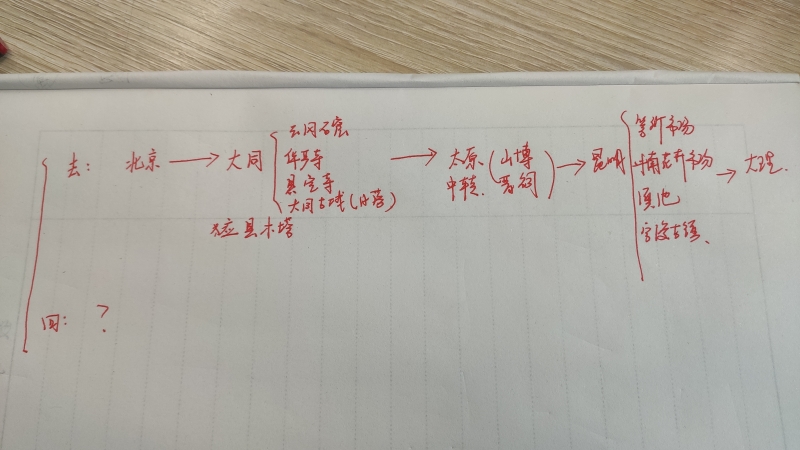 去: 北京 → 大同
云冈石窟
华严寺
悬空寺
大同古城(日落)
应县木塔
→ 太原 中转 (山博 晋祠)
→ 昆明
篆新市场
斗南花卉市场
滇池
官渡古镇、
→ 大理.
回: ?